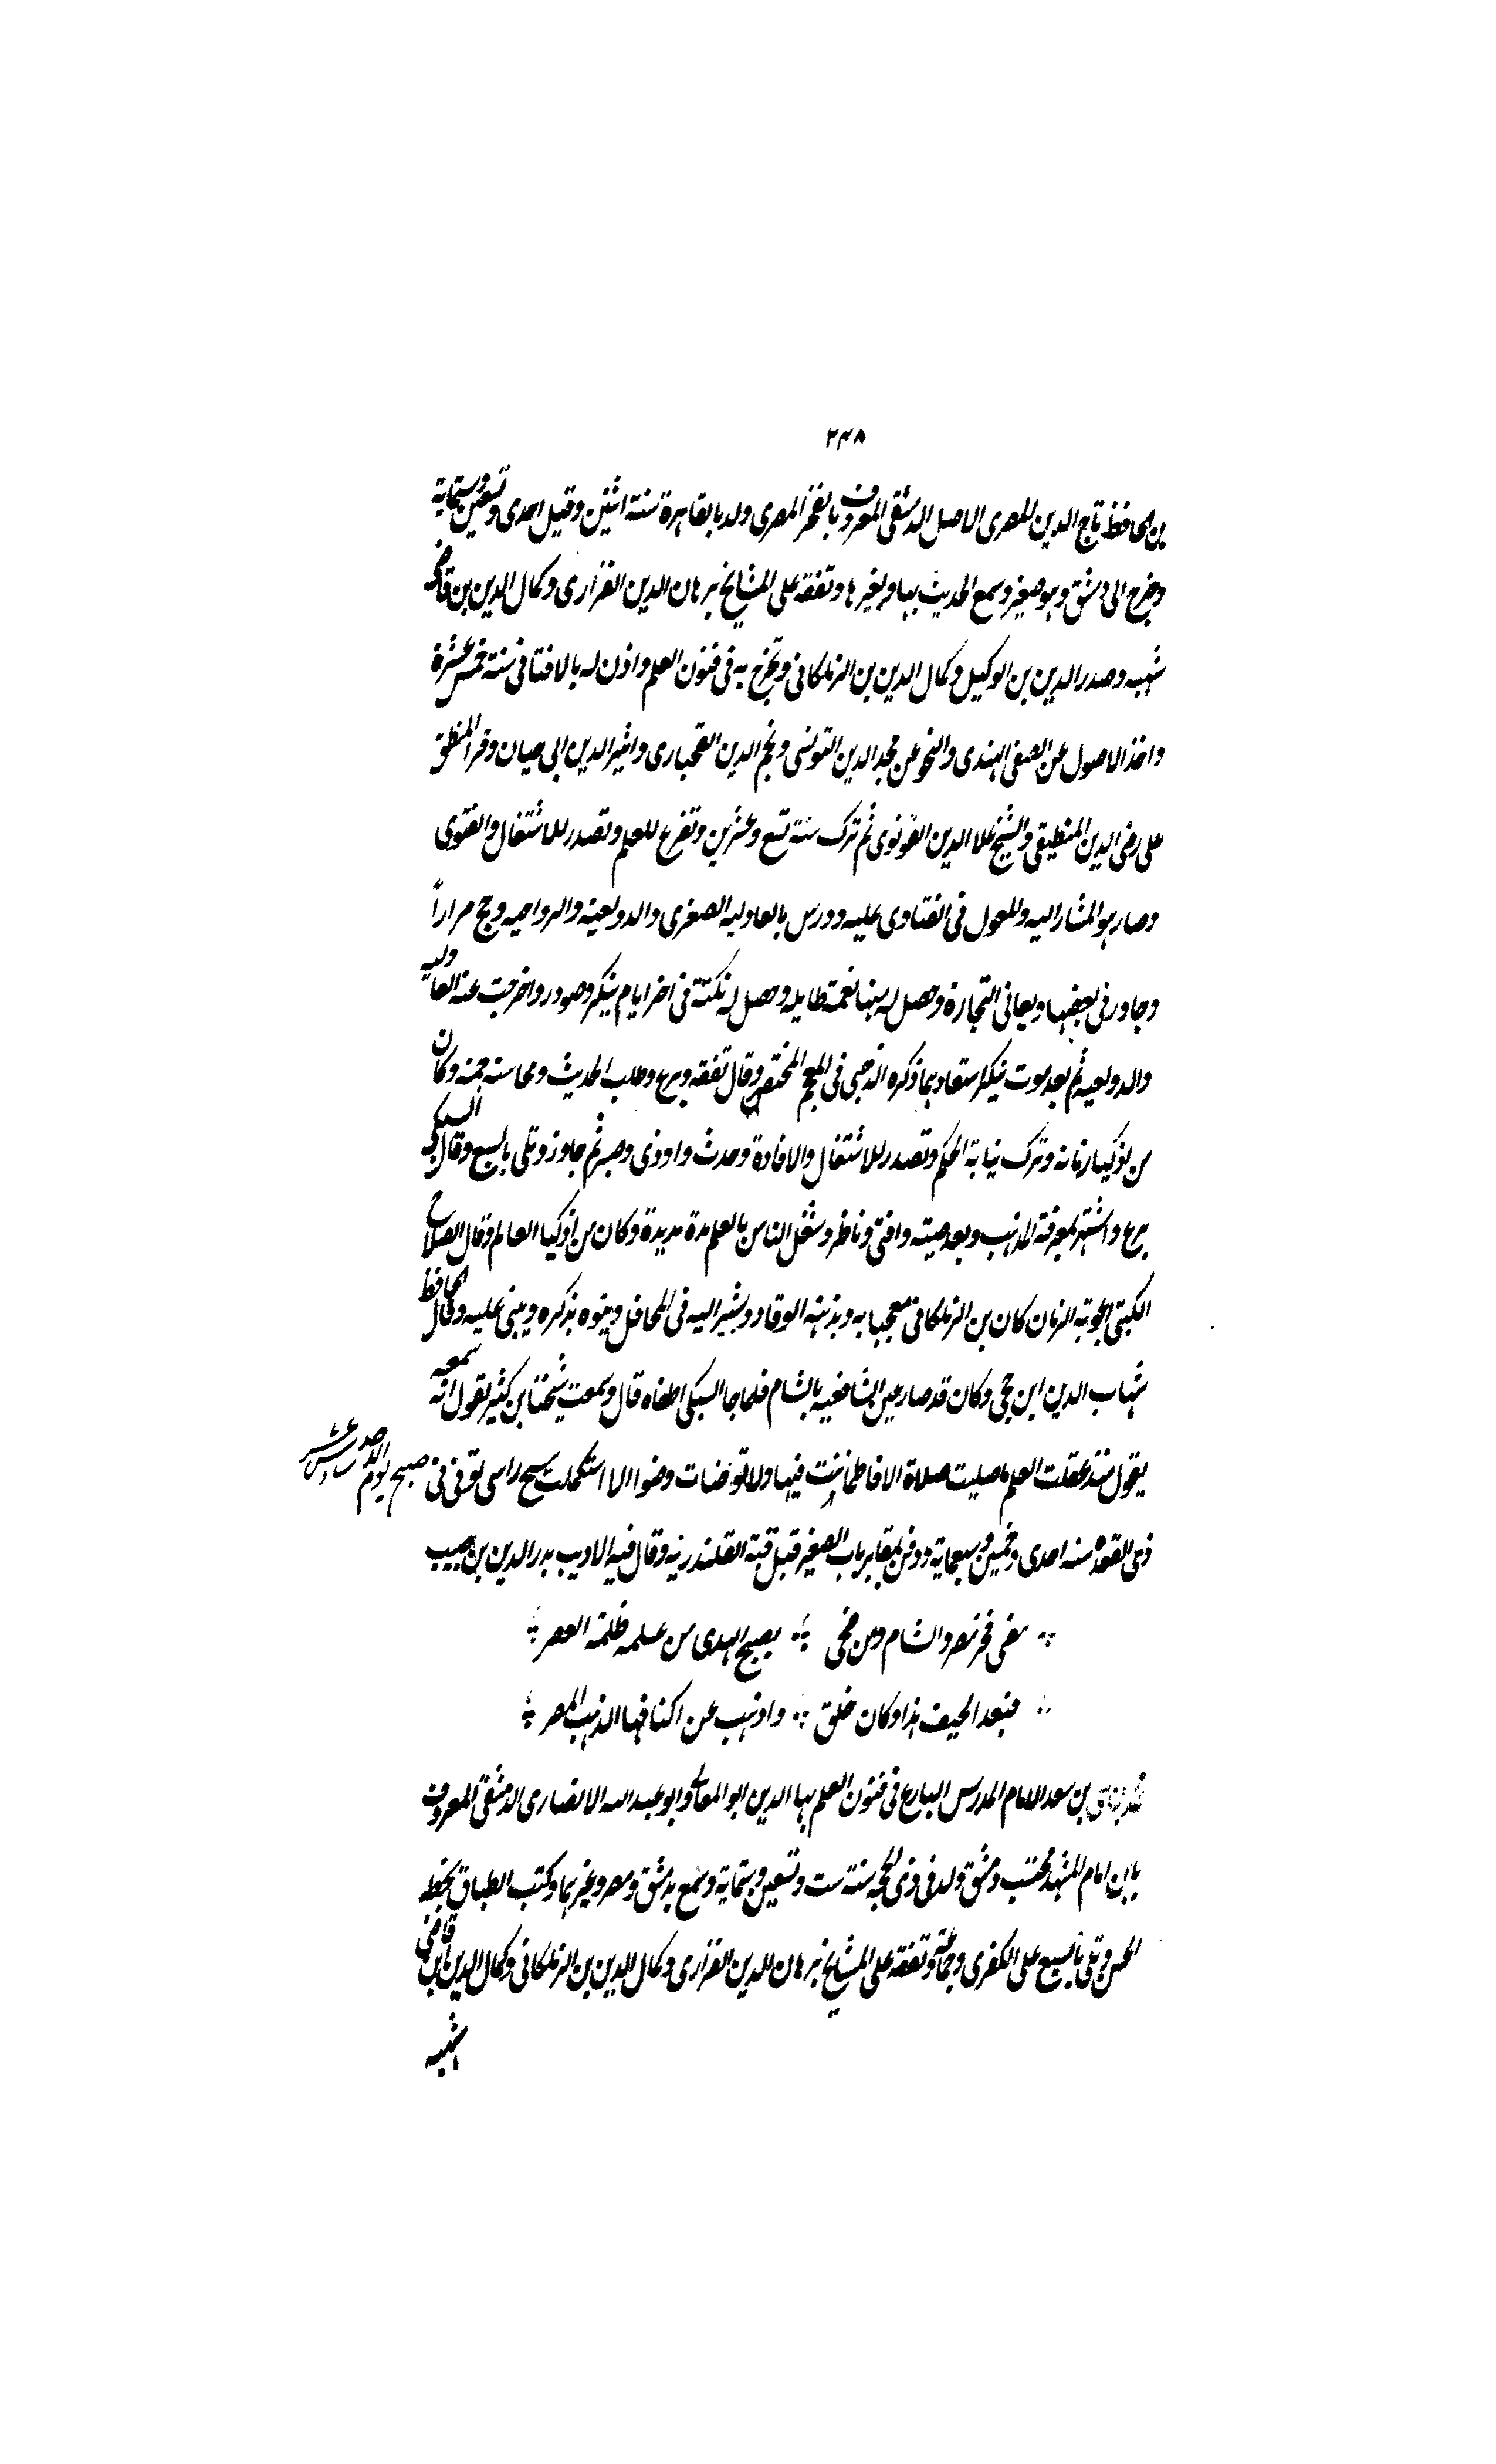 ٢٣٨
بن الحافظ تاج الدين المصرى الاصل الدمشقى المعروف بالفخر المصرى ولد بالقاهرة سنة اثنين وقيل احدى وتسعين وستماية
وخرج الى دمشق وهو صغير وسمع الحديث بها وبغيرها وتفقه على المشايخ برهان الدين الفزارى وكمال الدين بن قاضى
شهبه وصدر الدين بن الوكيل وكمال الدين بن الزملكانى وتخرج به فى فنون العلم واذن له بالافتا فى سنة خمس عشرة
واخذ الاصول عن الصفى الهندى والنحو عن مجد الدين التونسى ونجم الدين القحبارى واثير الدين ابى حيان وقرا المنطق
على رضى الدين المنطيقى والشيخ علا الدين القونوى ثم ترك سنة تسع وعشرين وتفرغ للعلم وتصدر للاشتغال والفتوى
وصار هو المشار اليه والمعول فى الفتاوى عليه ودرس بالعادليه الصغرى والدولعية والرواحيه وحج مراراً
وجاور فى بعضها ويعانى التجارة وحصل له منها نعمة طايله وحصل له نكتة فى اخر ايام تنكز وصودر واخرجت عنه العادليه
والدولعيه ثم بعد موت تنكز استعادهما ذكره الذهبى فى المعجم المختص وقال تفقه وبرع وطلب الحديث ومحاسنه جمة وكان
من اذكيا زمانه وترك نيابة الحكم وتصدر للاشتغال والافادة وحدث واوذى وصبر ثم جاور وتلى بالسبع وقال السبكى
برع واشتهر بمعرفة المذهب وبعد صيته وافتى وناظر وشغل الناس بالعلم مدة مديدة وكان من اذكيا العالم وقال الصلاح
الكتبى اعجوبة الزمان كان بن الزملكانى معجبا به وبذهنه الوقاد ويشير اليه فى المحافل وينوه بذكره ويثنى عليه وقال الحافظ
شهاب الدين ابن حجى وكان قد صار عين الشافعيه بالشام فلما جا السبكى اطفاه قال وسمعت شيخنا بن كثير يقول انه سمعه
يقول منذ عقلت العلم ما صليت صلاة الا فاطماننت فيها ولا توضات وضوا الا استكملت مسح راسى توفى فى صبح يوم الاحد سادس عشر
ذى القعدة سنه احدى وخمسين وسبعماية ودفن بمقابر باب الصغير قبل قبة القلندريه وقال فيه الاديب بدر الدين بن حبيب
مضى فخر مصر والشام ومن محى بصبح الهدى من علمه ظلمة العصر
فبعد الحيف هذا وكان خلق واذهب عن اكنافها الذهب المصر
بن سعد الامام المدرس البارع فى فنون العلم بها الدين ابو المعالى وابو عبد الله الانصارى الدمشقى المعروف
بابن امام المشهد محتسب دمشق ولد فى ذى الحجه سنة ست وتسعين وستماية وسمع بدمشق ومصر وغيرهما وكتب الطباق بخطه
الحسن وتلى بالسبع على الكفرى وجماعة وتفقه على المشايخ برهان الدين الفزارى وكمال الدين بن الزملكانى وكمال الدين ابن قاضى
شهبه